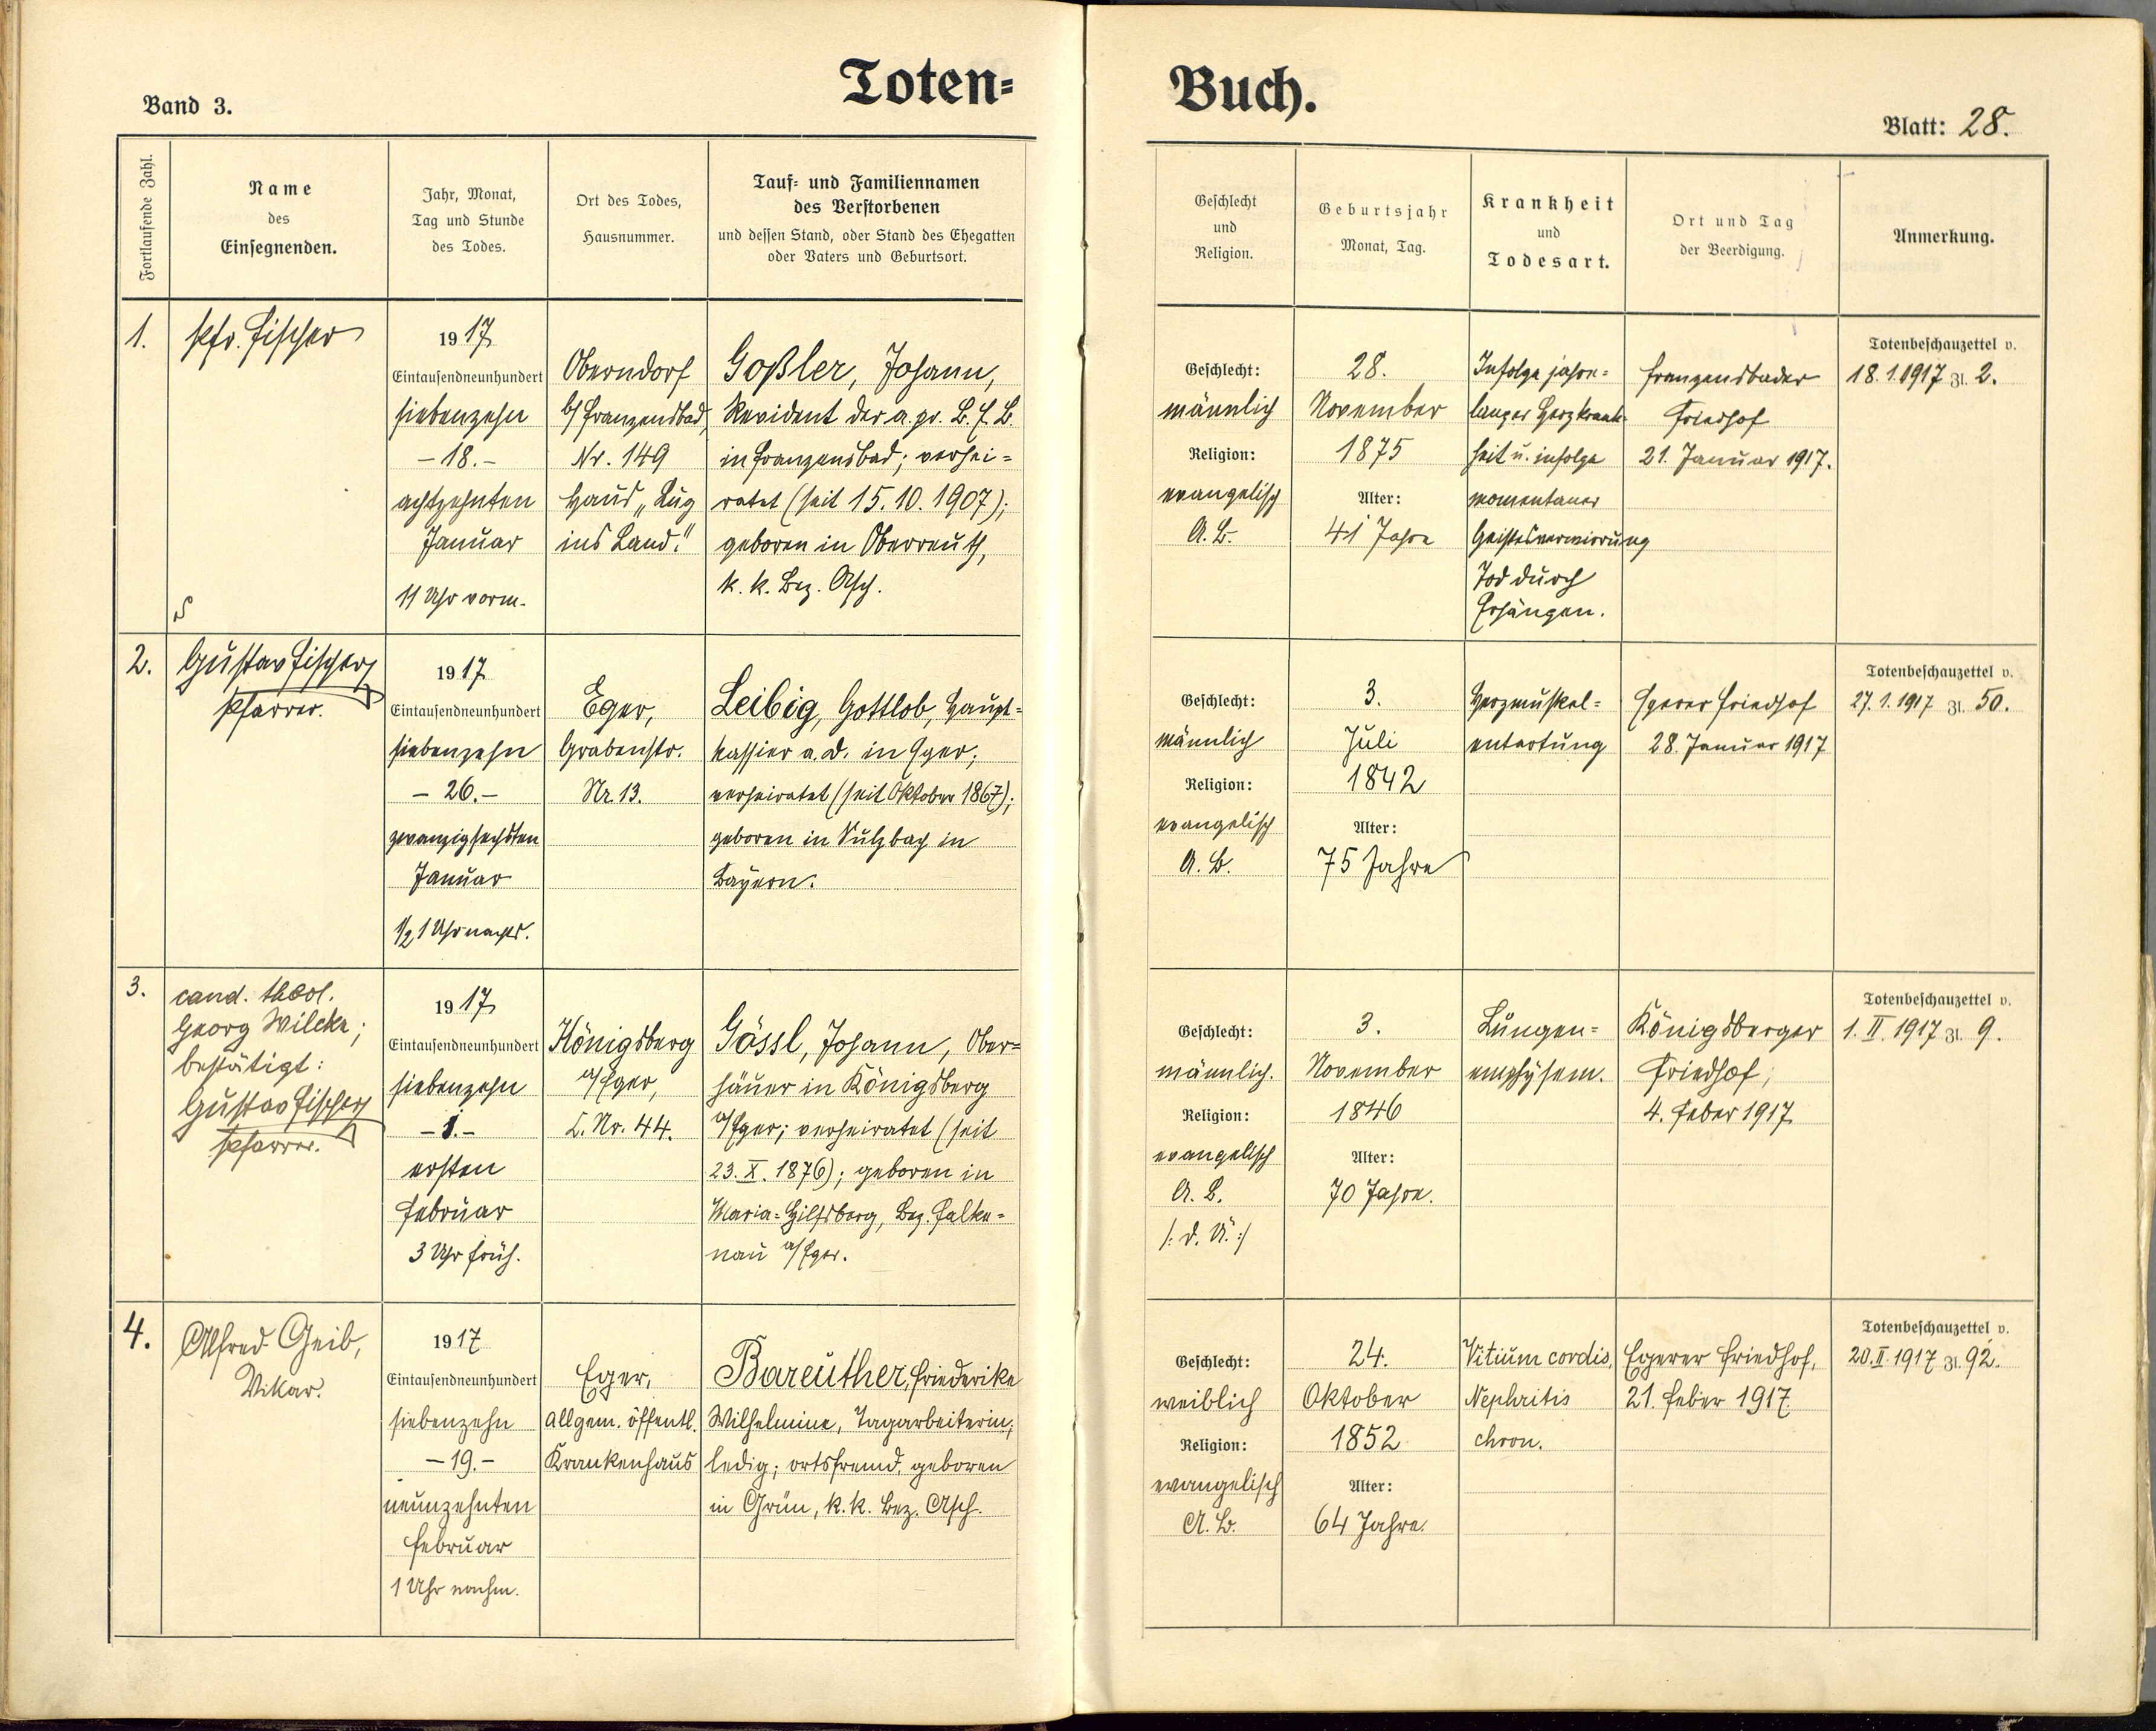 Band 3.
Toten=
Buch.
Blatt: 28.
Fortlaufende Zahl.
Name
des
Einsegnenden.
Jahr, Monat,
Tag und Stunde
des Todes.
Ort des Todes,
Hausnummer.
Tauf= und Familiennamen
des Verstorbenen
und dessen Stand, oder Stand des Ehegatten
oder Vaters und Geburtsort.
Geschlecht
und
Religion.
Geburtsjahr
Monat, Tag.
Krankheit
und
Todesart.
Ort und Tag
der Beerdigung.
Anmerkung.
1.
Pfr. Fischer
1917
Eintausendneunhundert
siebenzehn
– 18. –
achtzehnten
Januar
11 Uhr vorm.
Oberndorf
b/ Franzensbad,
Nr. 149
Haus „Lug
ins Land."
Goßler, Johann,
Revident der a. pr. B. E. B.
in Franzensbad; verhei=
ratet (seit 15.10.1907);
geboren in Oberreuth,
k. k. Bez. Asch.
Geschlecht:
männlich
Religion:
evangelisch
A. B.
28.
November
1875
Alter:
41 Jahre
Infolge jahre=
langer Herzkrank=
heit u. infolge
momentaner
Geistesverwirrung
Tod durch
Erhängen.
Franzensbader
Friedhof
21. Januar 1917.
Totenbeschauzettel v.
18.1.1917 Zl. 2.
2.
Gustav Fischer,
Pfarrer.
1917
Eintausendneunhundert
siebenzehn
– 26. –
zwanzigsechsten
Januar
1/2 1 Uhr nachts.
Eger,
Grabenstr.
Nr. 13.
Leibig, Gottlob, Haupt=
kassier a. d. in Eger;
verheiratet (seit Oktober 1867);
geboren in Sulzbach in
Bayern.
Geschlecht:
männlich
Religion:
evangelisch
A. B.
3.
Juli
1842
Alter:
75 Jahre
Herzmuskel=
entartung
Egerer Friedhof
28. Januar 1917
Totenbeschauzettel v.
27.1.1917 Zl. 50.
3.
cand. theol.
Georg Wilcke;
bestätigt:
Gustav Fischer,
Pfarrer.
1917
Eintausendneunhundert
siebenzehn
– 1. –
ersten
Februar
3 Uhr früh.
Königsberg
a/Eger,
C. Nr. 44.
Gössl, Johann, Ober=
häuer in Königsberg
a/Eger; verheiratet (seit
23. X. 1876); geboren in
Maria=Hilfsberg, Bez. Falke=
nau a/Eger.
Geschlecht:
männlich.
Religion:
evangelisch
A. B.
/: d. Ü. :/
3.
November
1846
Alter:
70 Jahre.
Lungen=
emphysem.
Königsberger
Friedhof;
4. Feber 1917
Totenbeschauzettel v.
1. II. 1917 Zl. 9.
4.
Alfred Geib,
Vikar.
1917
Eintausendneunhundert
siebenzehn
– 19. –
neunzehnten
Februar
1 Uhr nachm.
Eger,
allgem. öffentl.
Krankenhaus
Bareuther, Friederike
Wilhelmine, Tagarbeiterin;
ledig; ortsfremd, geboren
in Grün, k. k. Bez. Asch.
Geschlecht:
weiblich
Religion:
evangelisch
A. B.
24.
Oktober
1852
Alter:
64 Jahre.
Vitium cordis,
Nephritis
chron.
Egerer Friedhof,
21. Feber 1917
Totenbeschauzettel v.
20. II. 1917 Zl. 92.